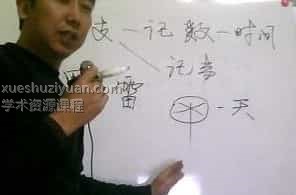 支一记数一时间
记季
雷
一天
xueshuziyuan.com
学术资源课程